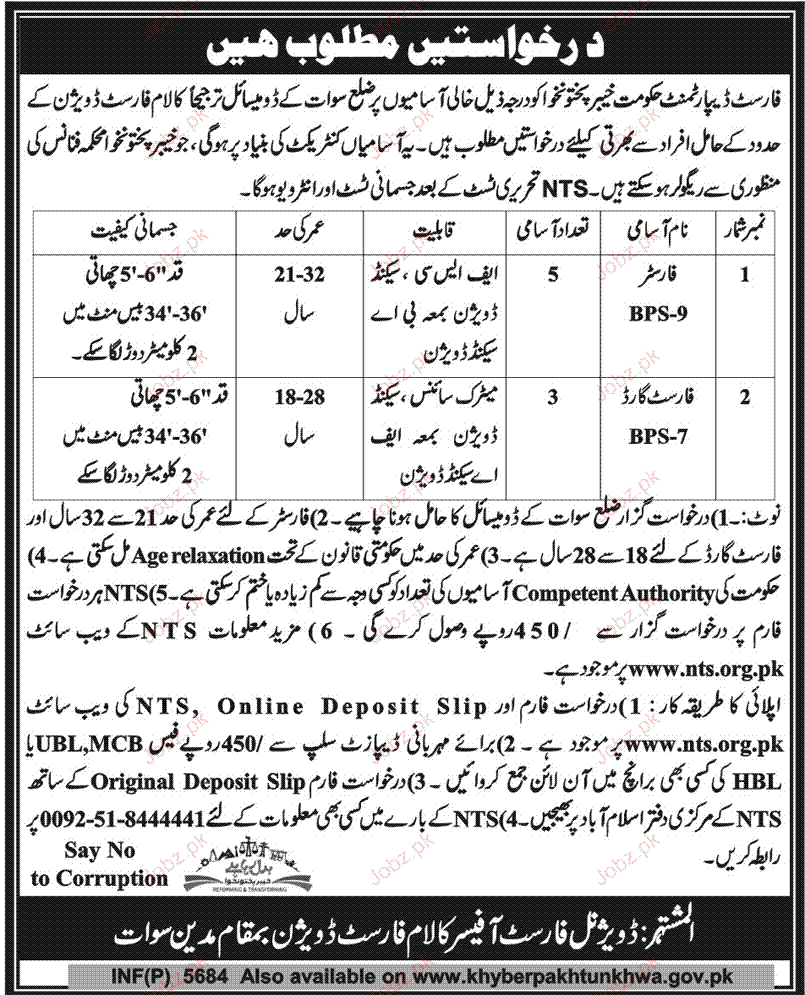 درخواستیں مطلوب ھیں
فارسٹ ڈیپارٹمنٹ حکومت خیبر پختونخوا کو درجہ ذیل خالی آسامیوں پر ضلع سوات کے ڈومیسائل ترجیحاً کالام فارسٹ ڈویژن کے
حدود کے حامل افراد سے بھرتی کیلئے درخواستیں مطلوب ہیں۔ یہ آسامیاں کنٹریکٹ کی بنیاد پر ہوگی، جو خیبر پختونخوا محکمہ فنانس کی
منظوری سے ریگولر ہوسکتے ہیں۔ NTS تحریری ٹسٹ کے بعد جسمانی ٹسٹ اور انٹرویو ہوگا۔
نمبر شمار نام آسامی تعداد آسامی قابلیت عمر کی حد جسمانی کیفیت
1 فارسٹر 5 ایف ایس سی، سیکنڈ 21-32 قد "6-'5 چھاتی
BPS-9 ڈویژن بمعہ بی اے سال '36-'34 بیس منٹ میں
سیکنڈ ڈویژن 2 کلومیٹر دوڑ لگا سکے۔
2 فارسٹ گارڈ 3 میٹرک سائنس، سیکنڈ 18-28 قد "6-'5 چھاتی
BPS-7 ڈویژن بمعہ ایف سال '36-'34 بیس منٹ میں
اے سیکنڈ ڈویژن 2 کلومیٹر دوڑ لگا سکے
نوٹ:۔ 1) درخواست گزار ضلع سوات کے ڈومیسائل کا حامل ہونا چاہیے۔ 2) فارسٹر کے لئے عمر کی حد 21 سے 32 سال اور
فارسٹ گارڈ کے لئے 18 سے 28 سال ہے۔ 3) عمر کی حد میں حکومتی قانون کے تحت Age relaxation مل سکتی ہے۔ 4)
حکومت کی Competent Authority آسامیوں کی تعداد کو کسی وجہ سے کم زیادہ یا ختم کرسکتی ہے۔ 5) NTS ہر درخواست
فارم پر درخواست گزار سے /450 روپے وصول کرے گی۔ 6) مزید معلومات NTS کے ویب سائٹ
www.nts.org.pk پر موجود ہے۔
اپلائی کا طریقہ کار: 1) درخواست فارم اور NTS, Online Deposit Slip کی ویب سائٹ
www.nts.org.pk پر موجود ہے۔ 2) برائے مہربانی ڈیپازٹ سلپ سے /450 روپے فیس UBL,MCB یا
HBL کی کسی بھی برانچ میں آن لائن جمع کروائیں۔ 3) درخواست فارم Original Deposit Slip کے ساتھ
NTS کے مرکزی دفتر اسلام آباد پر بھیجیں۔ 4) NTS کے بارے میں کسی بھی معلومات کے لئے 0092-51-8444441 پر
رابطہ کریں۔
Say No
to Corruption
خیبر پختونخوا
REFORMING & TRANSFORMING
المشتہر: ڈویژنل فارسٹ آفیسر کالام فارسٹ ڈویژن بمقام مدین سوات
INF(P) 5684 Also available on www.khyberpakhtunkhwa.gov.pk
Jobz.pk